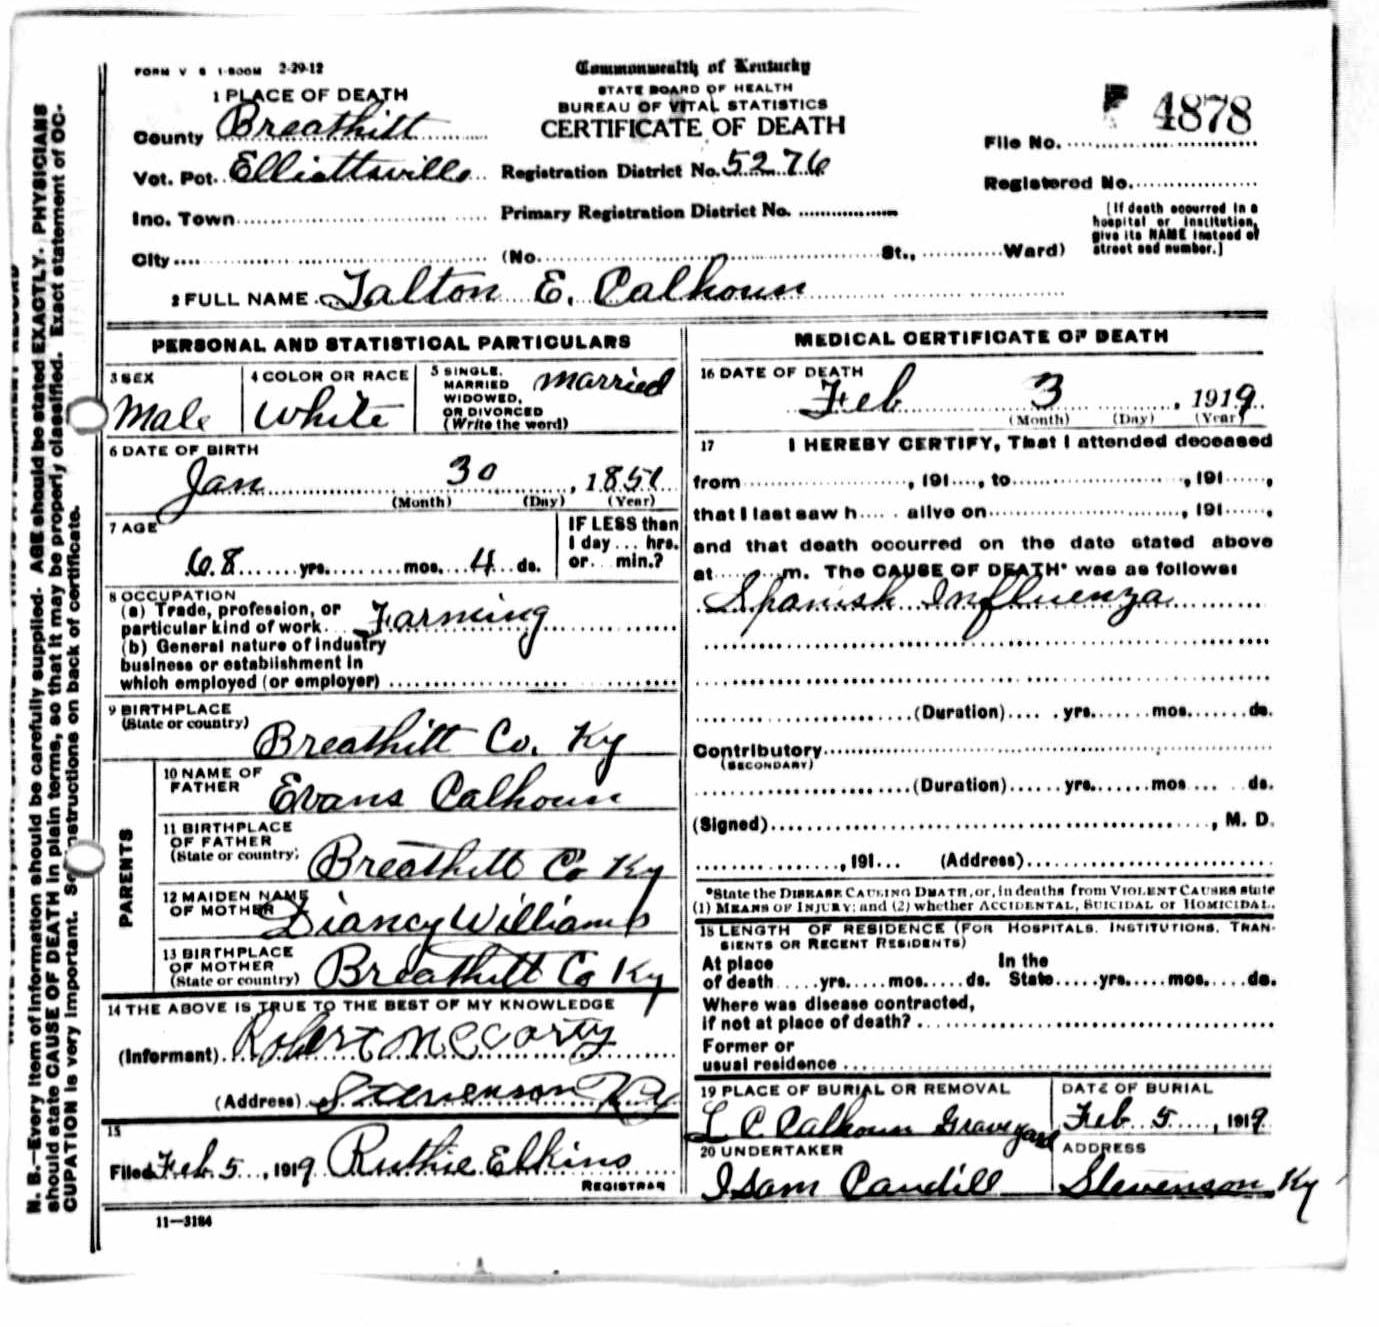 FORM V S 1-500M 2-29-12
Commonwealth of Kentucky
STATE BOARD OF HEALTH
BUREAU OF VITAL STATISTICS
CERTIFICATE OF DEATH
1 PLACE OF DEATH
County Breathitt
Vot. Pct. Elliottsville
Registration District No. 5276
Inc. Town
Primary Registration District No.
City (No. St., Ward)
File No. 4878
Registered No.
[If death occurred in a
hospital or institution,
give its NAME instead of
street and number.]
2 FULL NAME Talton E. Calhoun
PERSONAL AND STATISTICAL PARTICULARS
3 SEX
Male
4 COLOR OR RACE
White
5 SINGLE,
MARRIED
WIDOWED,
OR DIVORCED
(Write the word)
married
6 DATE OF BIRTH
Jan 30, 1851
(Month) (Day) (Year)
7 AGE
68 yrs. mos. 4 ds.
IF LESS than
1 day ... hrs.
or ... min.?
8 OCCUPATION
(a) Trade, profession, or
particular kind of work Farming
(b) General nature of industry
business or establishment in
which employed (or employer)
9 BIRTHPLACE
(State or country)
Breathitt Co. Ky
PARENTS
10 NAME OF
FATHER
Evans Calhoun
11 BIRTHPLACE
OF FATHER
(State or country)
Breathitt Co Ky
12 MAIDEN NAME
OF MOTHER
Diancy Williams
13 BIRTHPLACE
OF MOTHER
(State or country)
Breathitt Co Ky
14 THE ABOVE IS TRUE TO THE BEST OF MY KNOWLEDGE
(Informant) Robert McCarty
(Address) Stevenson Ky
15
Filed Feb 5, 1919 Ruthie Elkins
REGISTRAR
11-3184
MEDICAL CERTIFICATE OF DEATH
16 DATE OF DEATH
Feb 3, 1919
(Month) (Day) (Year)
17 I HEREBY CERTIFY, That I attended deceased
from , 191 , to , 191 ,
that I last saw h alive on , 191 ,
and that death occurred on the date stated above
at m. The CAUSE OF DEATH* was as follows:
Spanish Influenza
(Duration) yrs. mos. ds.
Contributory
(SECONDARY)
(Duration) yrs. mos. ds.
(Signed) , M. D.
, 191 (Address)
*State the DISEASE CAUSING DEATH, or, in deaths from VIOLENT CAUSES state
(1) MEANS OF INJURY; and (2) whether ACCIDENTAL, SUICIDAL or HOMICIDAL.
18 LENGTH OF RESIDENCE (FOR HOSPITALS, INSTITUTIONS, TRAN-
SIENTS OR RECENT RESIDENTS)
At place In the
of death yrs. mos. ds. State yrs. mos. ds.
Where was disease contracted,
if not at place of death?
Former or
usual residence
19 PLACE OF BURIAL OR REMOVAL
L C Calhoun Graveyard
DATE OF BURIAL
Feb 5, 1919
20 UNDERTAKER
Isam Caudill
ADDRESS
Stevenson Ky
N. B.—Every item of information should be carefully supplied. AGE should be stated EXACTLY. PHYSICIANS
should state CAUSE OF DEATH in plain terms, so that it may be properly classified. Exact statement of OC-
CUPATION is very important. See instructions on back of certificate.